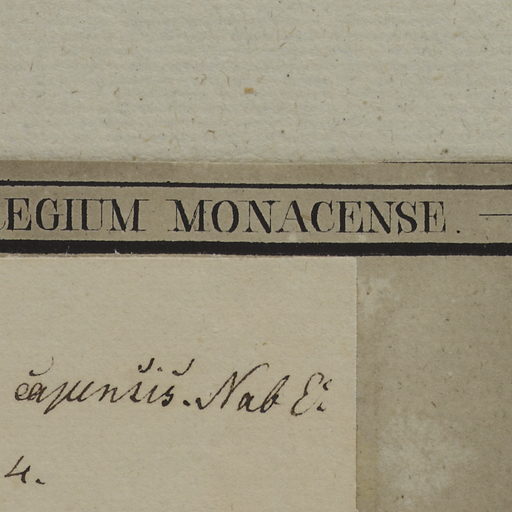 EGIUM MONACENSE.
capensis. Nab E:
4.